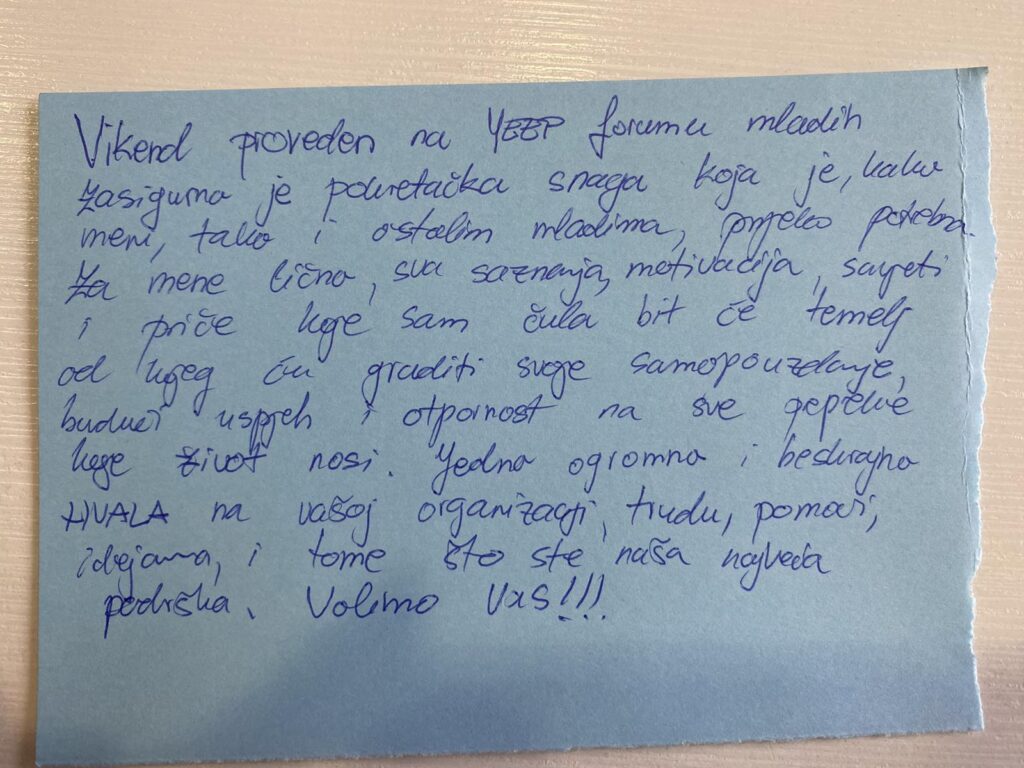 Vikend proveden na YEEP forumu mladih
zasigurno je pokretačka snaga koja je, kako
meni, tako i ostalim mladima, prijeko potrebna.
Za mene lično, sva saznanja, motivacija, savjeti
i priče koje sam čula bit će temelj
od kojeg ću graditi svoje samopouzdanje,
budući uspjeh i otpornost na sve prepreke
koje život nosi. Jedno ogromno i beskrajno
HVALA na vašoj organizaciji, trudu, pomoći,
idejama, i tome što ste naša najveća
podrška. Volimo Vas!!!